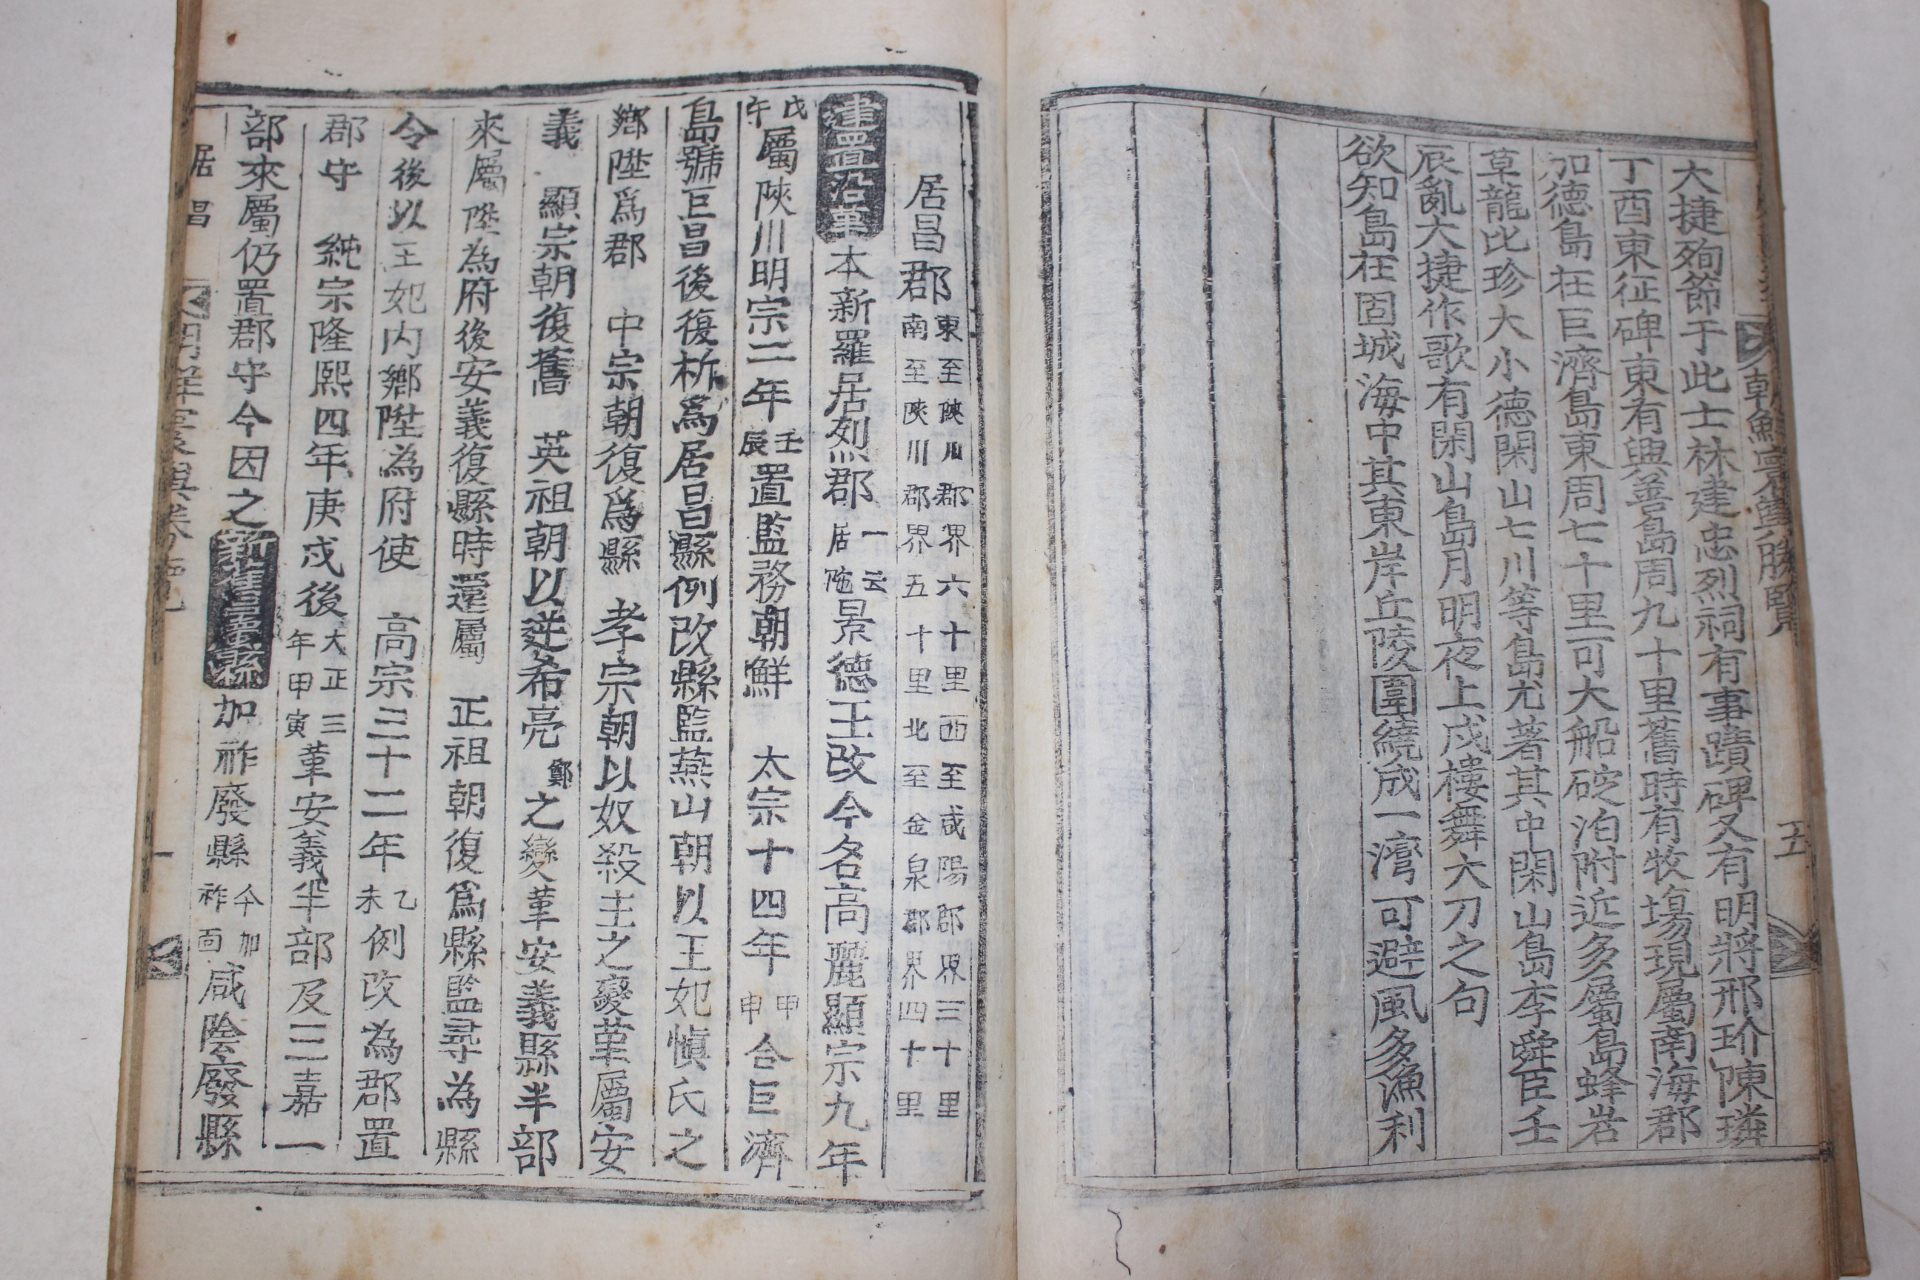 朝鮮寰輿勝覽
五
大捷殉節于此士林建忠烈祠有事蹟碑又有明將邢玠陳璘
丁酉東征碑東有興善島周九十里舊時有牧場現屬南海郡
加德島在巨濟島東周七十里可大船碇泊附近多屬島蜂岩
草龍比珍大小德閑山七川等島尤著其中閑山島李舜臣壬
辰亂大捷作歌有閑山島月明夜上戍樓舞大刀之句
欲知島在固城海中其東岸丘陵圍繞成一湾可避風多漁利
居昌郡東至陜川郡界六十里西至咸陽郡界三十里南至陜川郡界五十里北至金泉郡界四十里
建置沿革本新羅居烈郡一云居陁景德王改今名高麗顯宗九年
戊午屬陜川明宗二年壬辰置監務朝鮮 太宗十四年甲申合巨濟
島號巨昌後復析爲居昌縣例改縣監燕山朝以王妃愼氏之
鄕陞爲郡 中宗朝復爲縣 孝宗朝以奴殺主之變革屬安
義 顯宗朝復舊 英祖朝以逆希亮鄭之變革安義縣半部
來屬陞為府後安義復縣時還屬 正祖朝復爲縣監尋為縣
令後以王妃内鄕陞為府使 高宗三十二年乙未例改為郡置
郡守 純宗隆熙四年庚戌後大正三年甲寅革安義半部及三嘉一
部來屬仍置郡守今因之新舊
縣加祚廢縣今加祚面咸陰廢縣
居昌
一